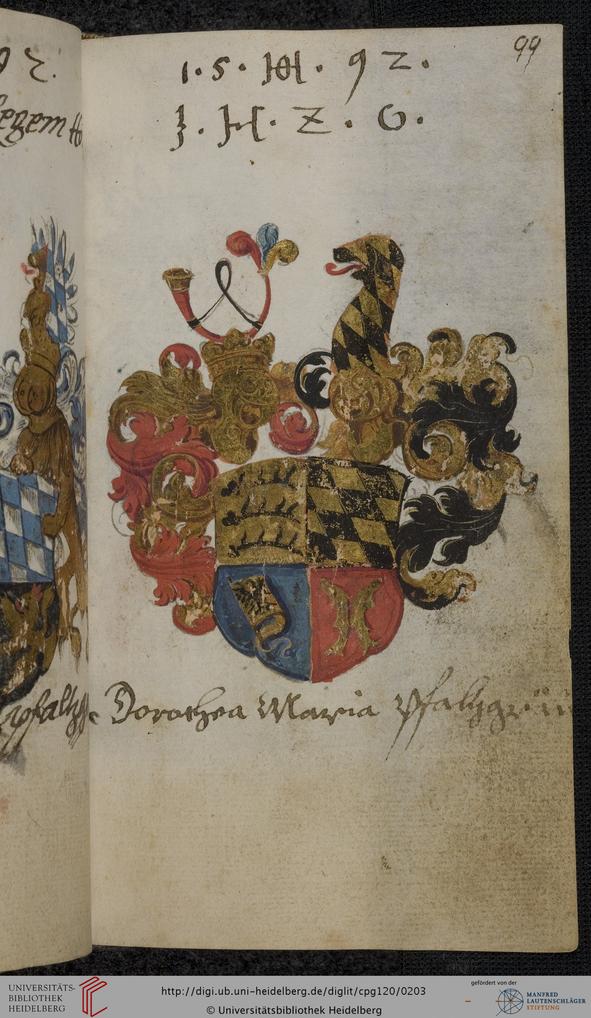 99
1 · 5 · H · 92 ·
J · H · Z · G ·
Dorothea Maria Pfaltzgräuin
UNIVERSITÄTS-
BIBLIOTHEK
HEIDELBERG
http://digi.ub.uni-heidelberg.de/diglit/cpg120/0203
© Universitätsbibliothek Heidelberg
gefördert von der
MANFRED
LAUTENSCHLÄGER
STIFTUNG